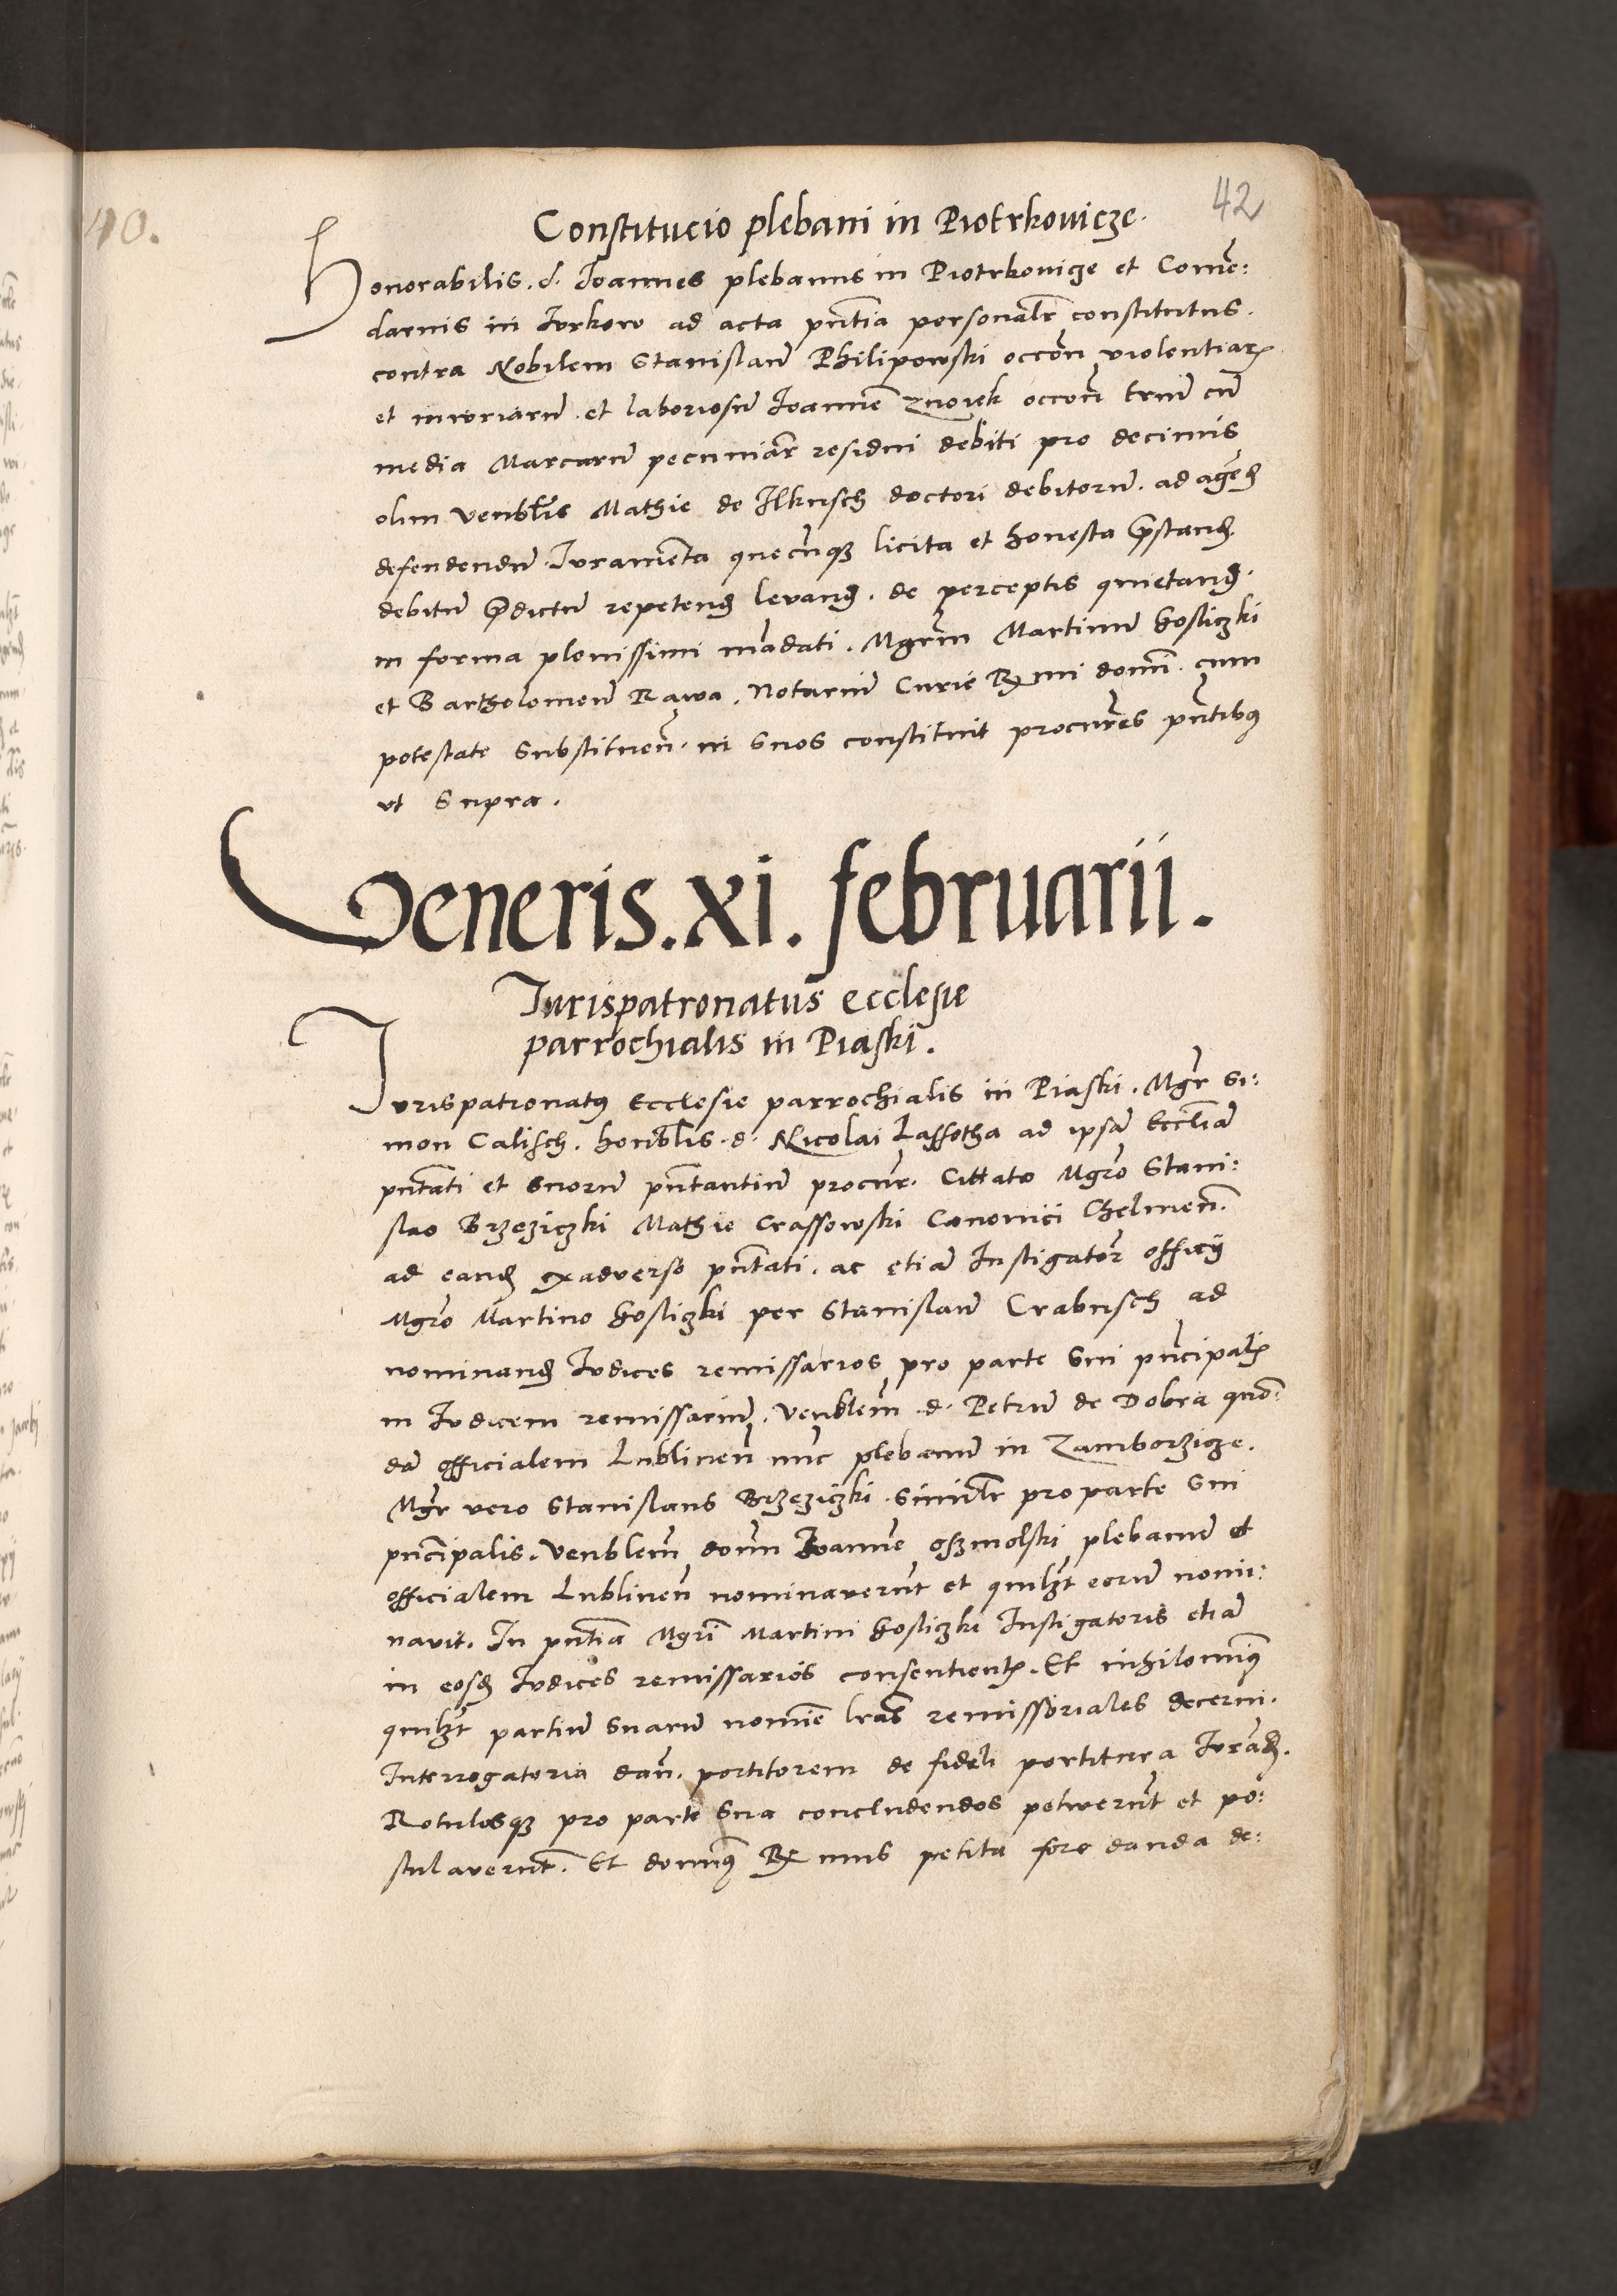 40.
42
Constitucio plebani in Piotrkovicze.
Honorabilis. d. Joannes plebanus in Piotrkovicze et Com̄e:
darius in Jvrkow ad acta pn̄tia personalr̄ constitutus.
contra Nobilem Stanislau͞ Philipowski occōn violentiaꝝ
et iniuriaru͞. et laboriosu͞ Joanne͞ Znoiek occon̄ triu͞ cu͞
media Marcaru͞ pecuniar͞ residui debiti pro decimis
olim Venbl̄is Mathie de Ilkusch doctori debitoru͞. ad agen̄ꝫ
defendendu͞. Jurame͞ta quecu͞qꝫ licita et honesta p̄standꝫ.
debitu͞ p̄dictu͞ repetendꝫ levandꝫ. de perceptis quietandꝫ.
in forma plenissimi ma͞dati. Mgrm̄ Martinu͞ Gosliczki
et Bartholomeu͞ Rąwa. Notariu͞ Curie R̄xmi domi͞. cum
potestate substituen̄. in suos constituit procur̄es pn̄tibꝰ
vt supra.
Veneris. xi. februarii.
Jurispatronatus ecclesie
parrochialis in Piaski.
Jvrispatronatꝰ Ecclesie parrochialis in Piaski. Mgr̄ Si:
mon Calisch. honbl̄is. d. Nicolai Lassotha ad ipsa͞ Eccl̄ia͞
pn̄tati et suoru͞ pn̄tantiu͞ procur̄. Cittato Mgr̄o Stani:
slao Brzeziczki Mathie Crassowski Canonici Chelmen̄.
ad eandꝫ exadverso pn̄tati. ac etia͞ Instigator̄ officij
Mgr̄o Martino Gosliczki per Stanislau͞ Crabusch ad
nominandꝫ Judices remissarios pro parte sui pn̄cipalꝭ
in Judicem remissariu͞. Venblem̄. d. Petru͞ de Dobra quo͞:
da͞ officialem Lublinen̄ nu͞c plebanu͞ in Zamborzicze.
Mgr̄ vero Stanislaus Brzeziczki. similr̄ pro parte sui
pn̄cipalis. Venblem̄ dom̄ Joanne͞ Oszmolski plebanu͞ et
officialem Lublinen̄ nominaveru͞t et quilꝫt eoru͞ nomi:
navit. In pn̄tia͞ Mgr̄i Martini Gosliczki Instigatoris etia͞
in eosdꝫ Judices remissarios consentientꝭ. Et nihilomi͞ꝰ
quilꝫt partiu͞ suaru͞ nomi͞e lr̄as remissoriales decerni.
Interrogatoria dan̄. portitorem de fideli portitura Jura͞dꝫ.
Rotulosqꝫ pro parte sua concludendos petiveru͞t et po:
stulaverunt̄. Et domi͞ꝰ R̄xmus petita fore danda de: